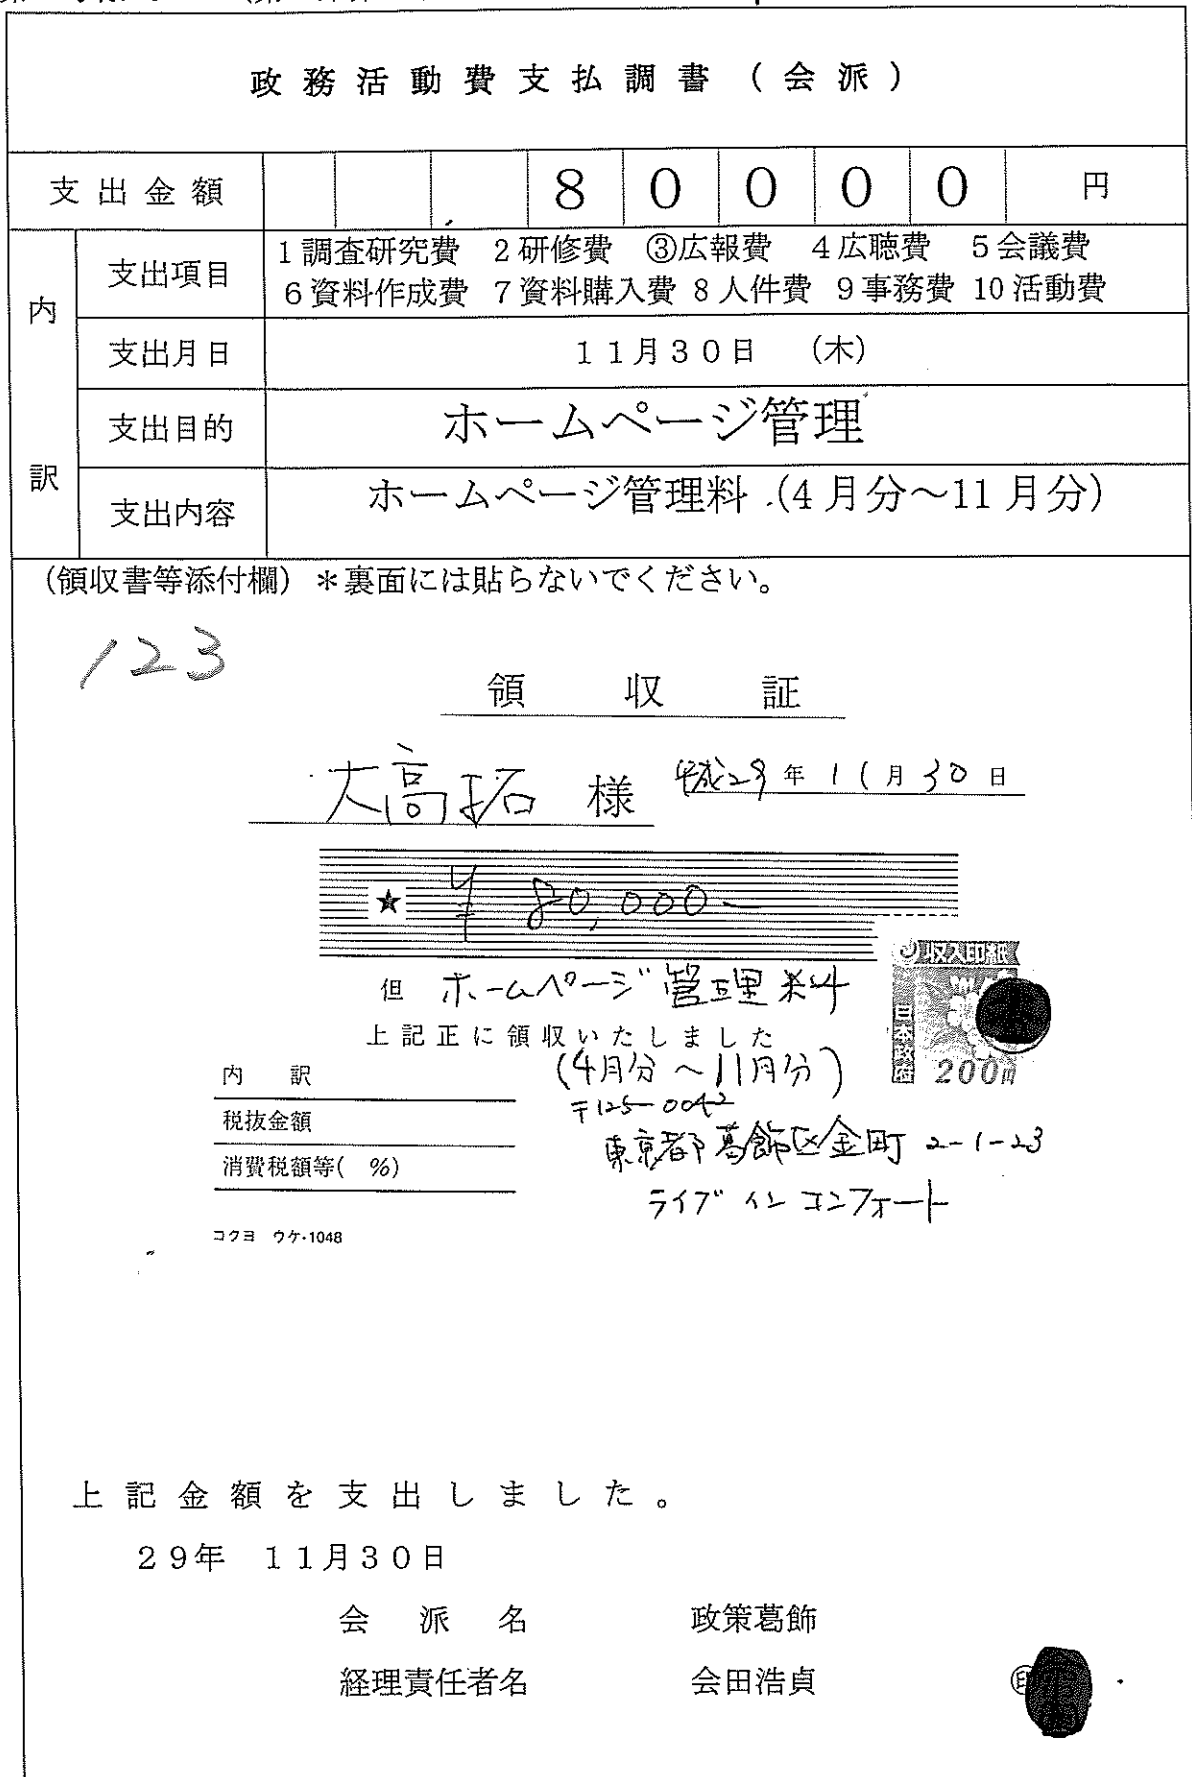 政務活動費支払調書（会派）
支出金額 80000 円
内訳
支出項目 1調査研究費 2研修費 ③広報費 4広聴費 5会議費
6資料作成費 7資料購入費 8人件費 9事務費 10活動費
支出月日 11月30日 (木)
支出目的 ホームページ管理
支出内容 ホームページ管理料 (4月分～11月分)
(領収書等添付欄) ＊裏面には貼らないでください。
123
領収証
大高拓 様 平成29年11月30日
★ ¥80,000-
但 ホームページ管理料
上記正に領収いたしました
(4月分～11月分)
収入印紙
日本政府
200円
内 訳
税抜金額
消費税額等( %)
〒125-0042
東京都葛飾区金町2-1-23
ライブインコンフォート
コクヨ ウケ-1048
上記金額を支出しました。
29年 11月30日
会派名 政策葛飾
経理責任者名 会田浩貞 ㊞